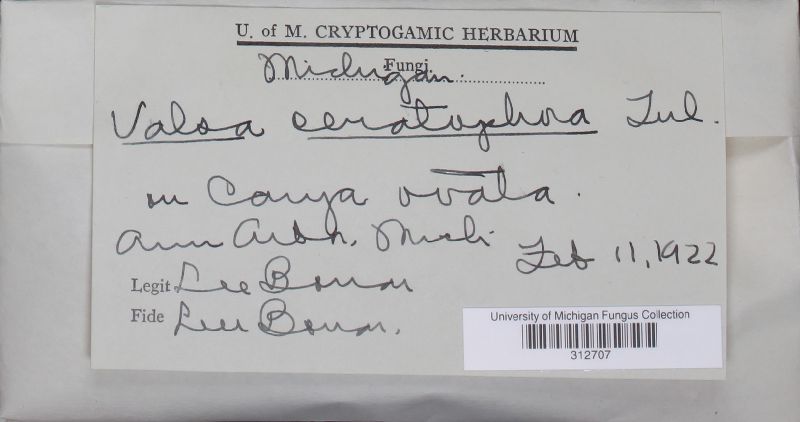 U. of M. CRYPTOGAMIC HERBARIUM
Fungi.
Michigan.
Valsa ceratophora Tul.
on Carya ovata.
Ann Arbor, Mich.
Feb 11, 1922
Legit Lee Bonar
Fide Lee Bonar.
University of Michigan Fungus Collection
312707